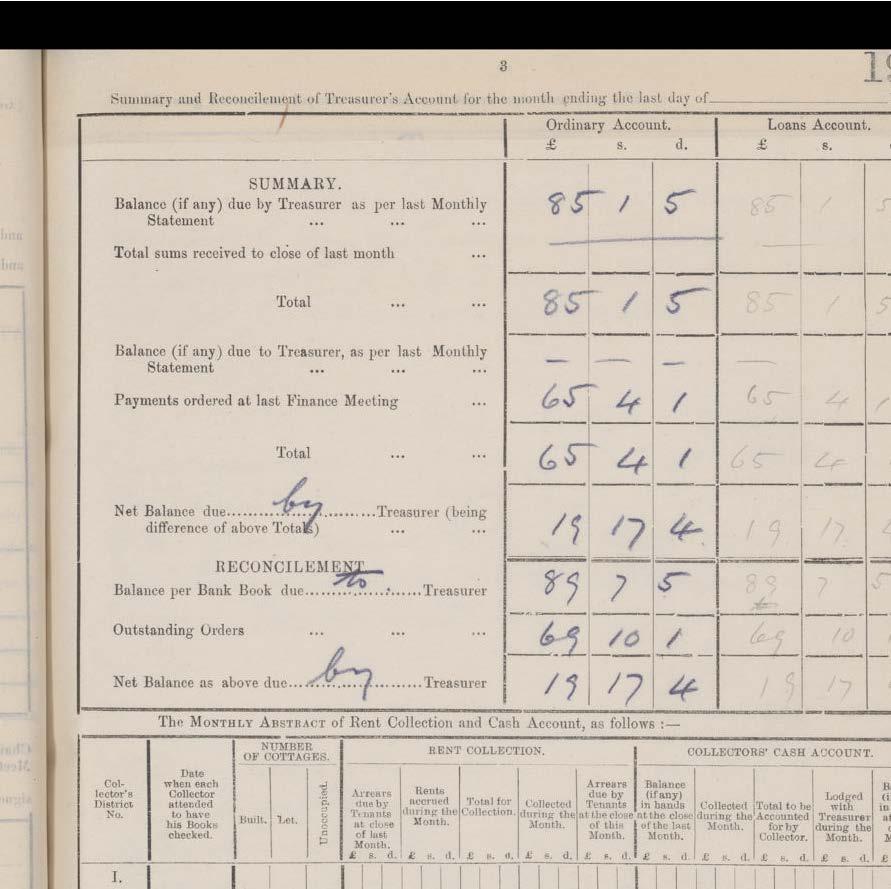 3
19
Summary and Reconcilement of Treasurer's Account for the month ending the last day of
Ordinary Account. Loans Account.
£ s. d. £ s.
SUMMARY.
Balance (if any) due by Treasurer as per last Monthly
Statement ... ... ... 85 1 5 85 1 5
Total sums received to close of last month ...
Total ... ... 85 1 5 85 1 5
Balance (if any) due to Treasurer, as per last Monthly
Statement ... ... ... — — — —
Payments ordered at last Finance Meeting ... 65 4 1 65 4 1
Total ... ... 65 4 1 65 4
Net Balance due by Treasurer (being
difference of above Totals) ... ... 19 17 4 19 17
RECONCILEMENT
Balance per Bank Book due to Treasurer 89 7 5 89 7 5
Outstanding Orders ... ... ... 69 10 1 69 10
Net Balance as above due by Treasurer 19 17 4 19 17
The MONTHLY ABSTRACT of Rent Collection and Cash Account, as follows :—
Collector's District No.
Date when each Collector attended to have his Books checked.
NUMBER OF COTTAGES.
Built. Let. Unoccupied.
RENT COLLECTION.
Arrears due by Tenants at close of last Month.
Rents accrued during the Month.
Total for Collection.
Collected during the Month.
Arrears due by Tenants at the close of this Month.
COLLECTORS' CASH ACCOUNT.
Balance (if any) in hands at the close of the last Month.
Collected during the Month.
Total to be Accounted for by Collector.
Lodged with Treasurer during the Month.
£ s. d. £ s. d. £ s. d. £ s. d. £ s. d. £ s. d. £ s. d. £ s. d. £ s. d. £
I.